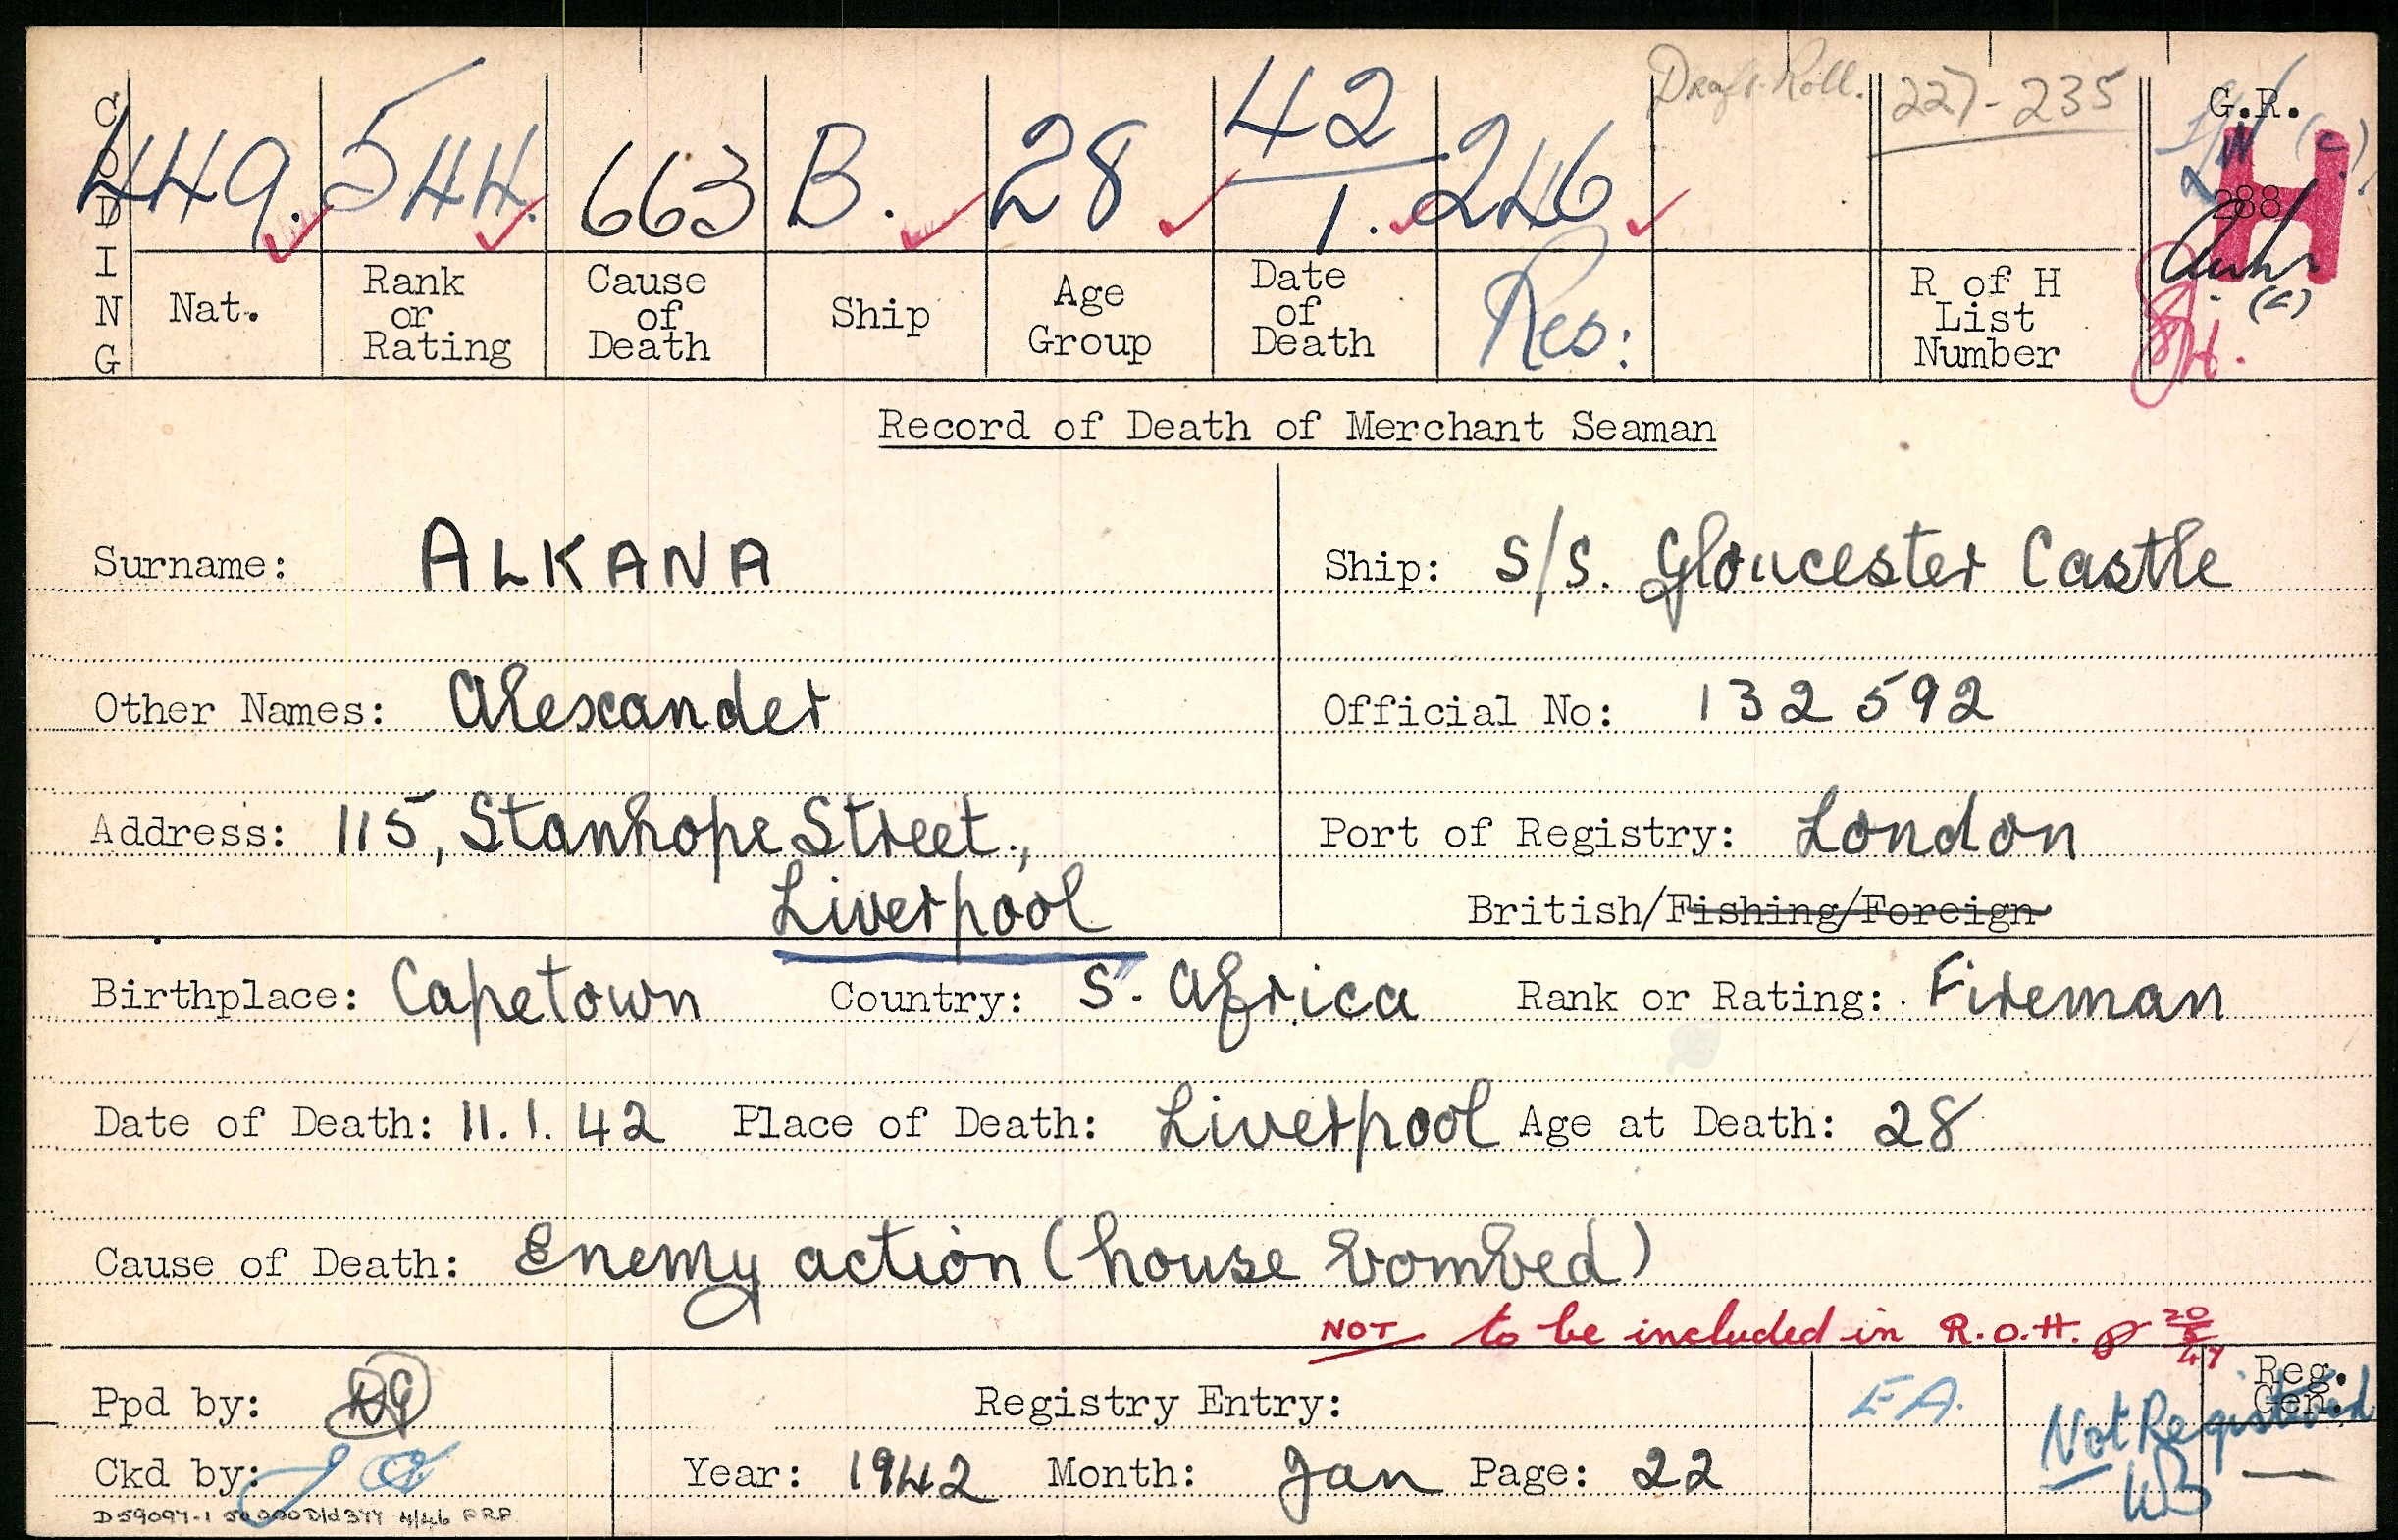 Draft Roll. 227-235 G.R.
CODING 449. 544. 663 B. 28 42/1. 246 H 288
Nat. Rank or Rating Cause of Death Ship Age Group Date of Death Res: R of H List Number (c)
Record of Death of Merchant Seaman
Surname: ALKANA Ship: S/S. Gloucester Castle
Other Names: Alexander Official No: 132592
Address: 115, Stanhope Street., Port of Registry: London
Liverpool British/Fishing/Foreign
Birthplace: Capetown Country: S. Africa Rank or Rating: Fireman
Date of Death: 11.1.42 Place of Death: Liverpool Age at Death: 28
Cause of Death: Enemy action (house bombed)
NOT to be included in R.O.H. 20/5/47
Ppd by: Registry Entry: EA. Reg. Gen.
Not Registered
Ckd by: Year: 1942 Month: Jan Page: 22 WB